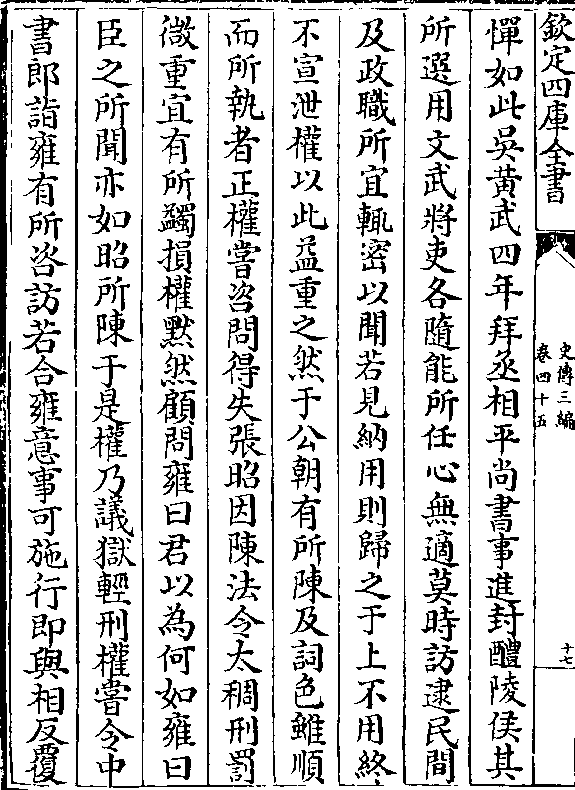 欽定四庫全書
史傳三編
卷四十五
十七
憚如此吳黃武四年拜丞相平尚書事進封醴陵侯其
所選用文武將吏各隨能所任心無適莫時訪逮民間
及政職所宜輒密以聞若見納用則歸之于上不用終
不宣泄權以此益重之然于公朝有所陳及詞色雖順
而所執者正權嘗咨問得失張昭因陳法令太稠刑罰
微重宜有所蠲損權默然顧問雍曰君以為何如雍曰
臣之所聞亦如昭所陳于是權乃議獄輕刑權嘗令中
書郎詣雍有所咨訪若合雍意事可施行即與相反覆